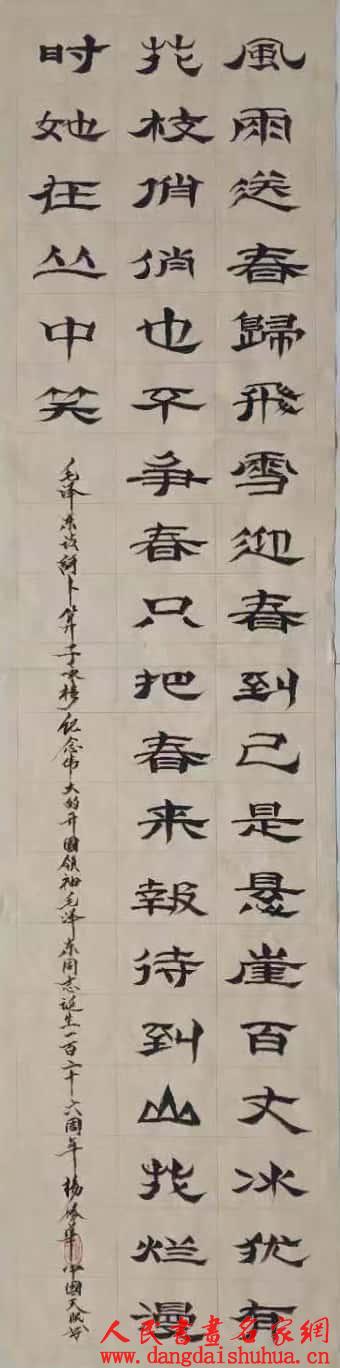 風雨送春歸飛雪迎春到已是悬崖百丈冰犹有
花枝俏俏也不爭春只把春来報待到山花烂漫
时她在丛中笑
毛泽东诗词卜算子咏梅纪念伟大的开國领袖毛泽东同志诞生一百二十六周年 杨 中國天眼
人民書畫名家網
www.dangdaishuhua.cn